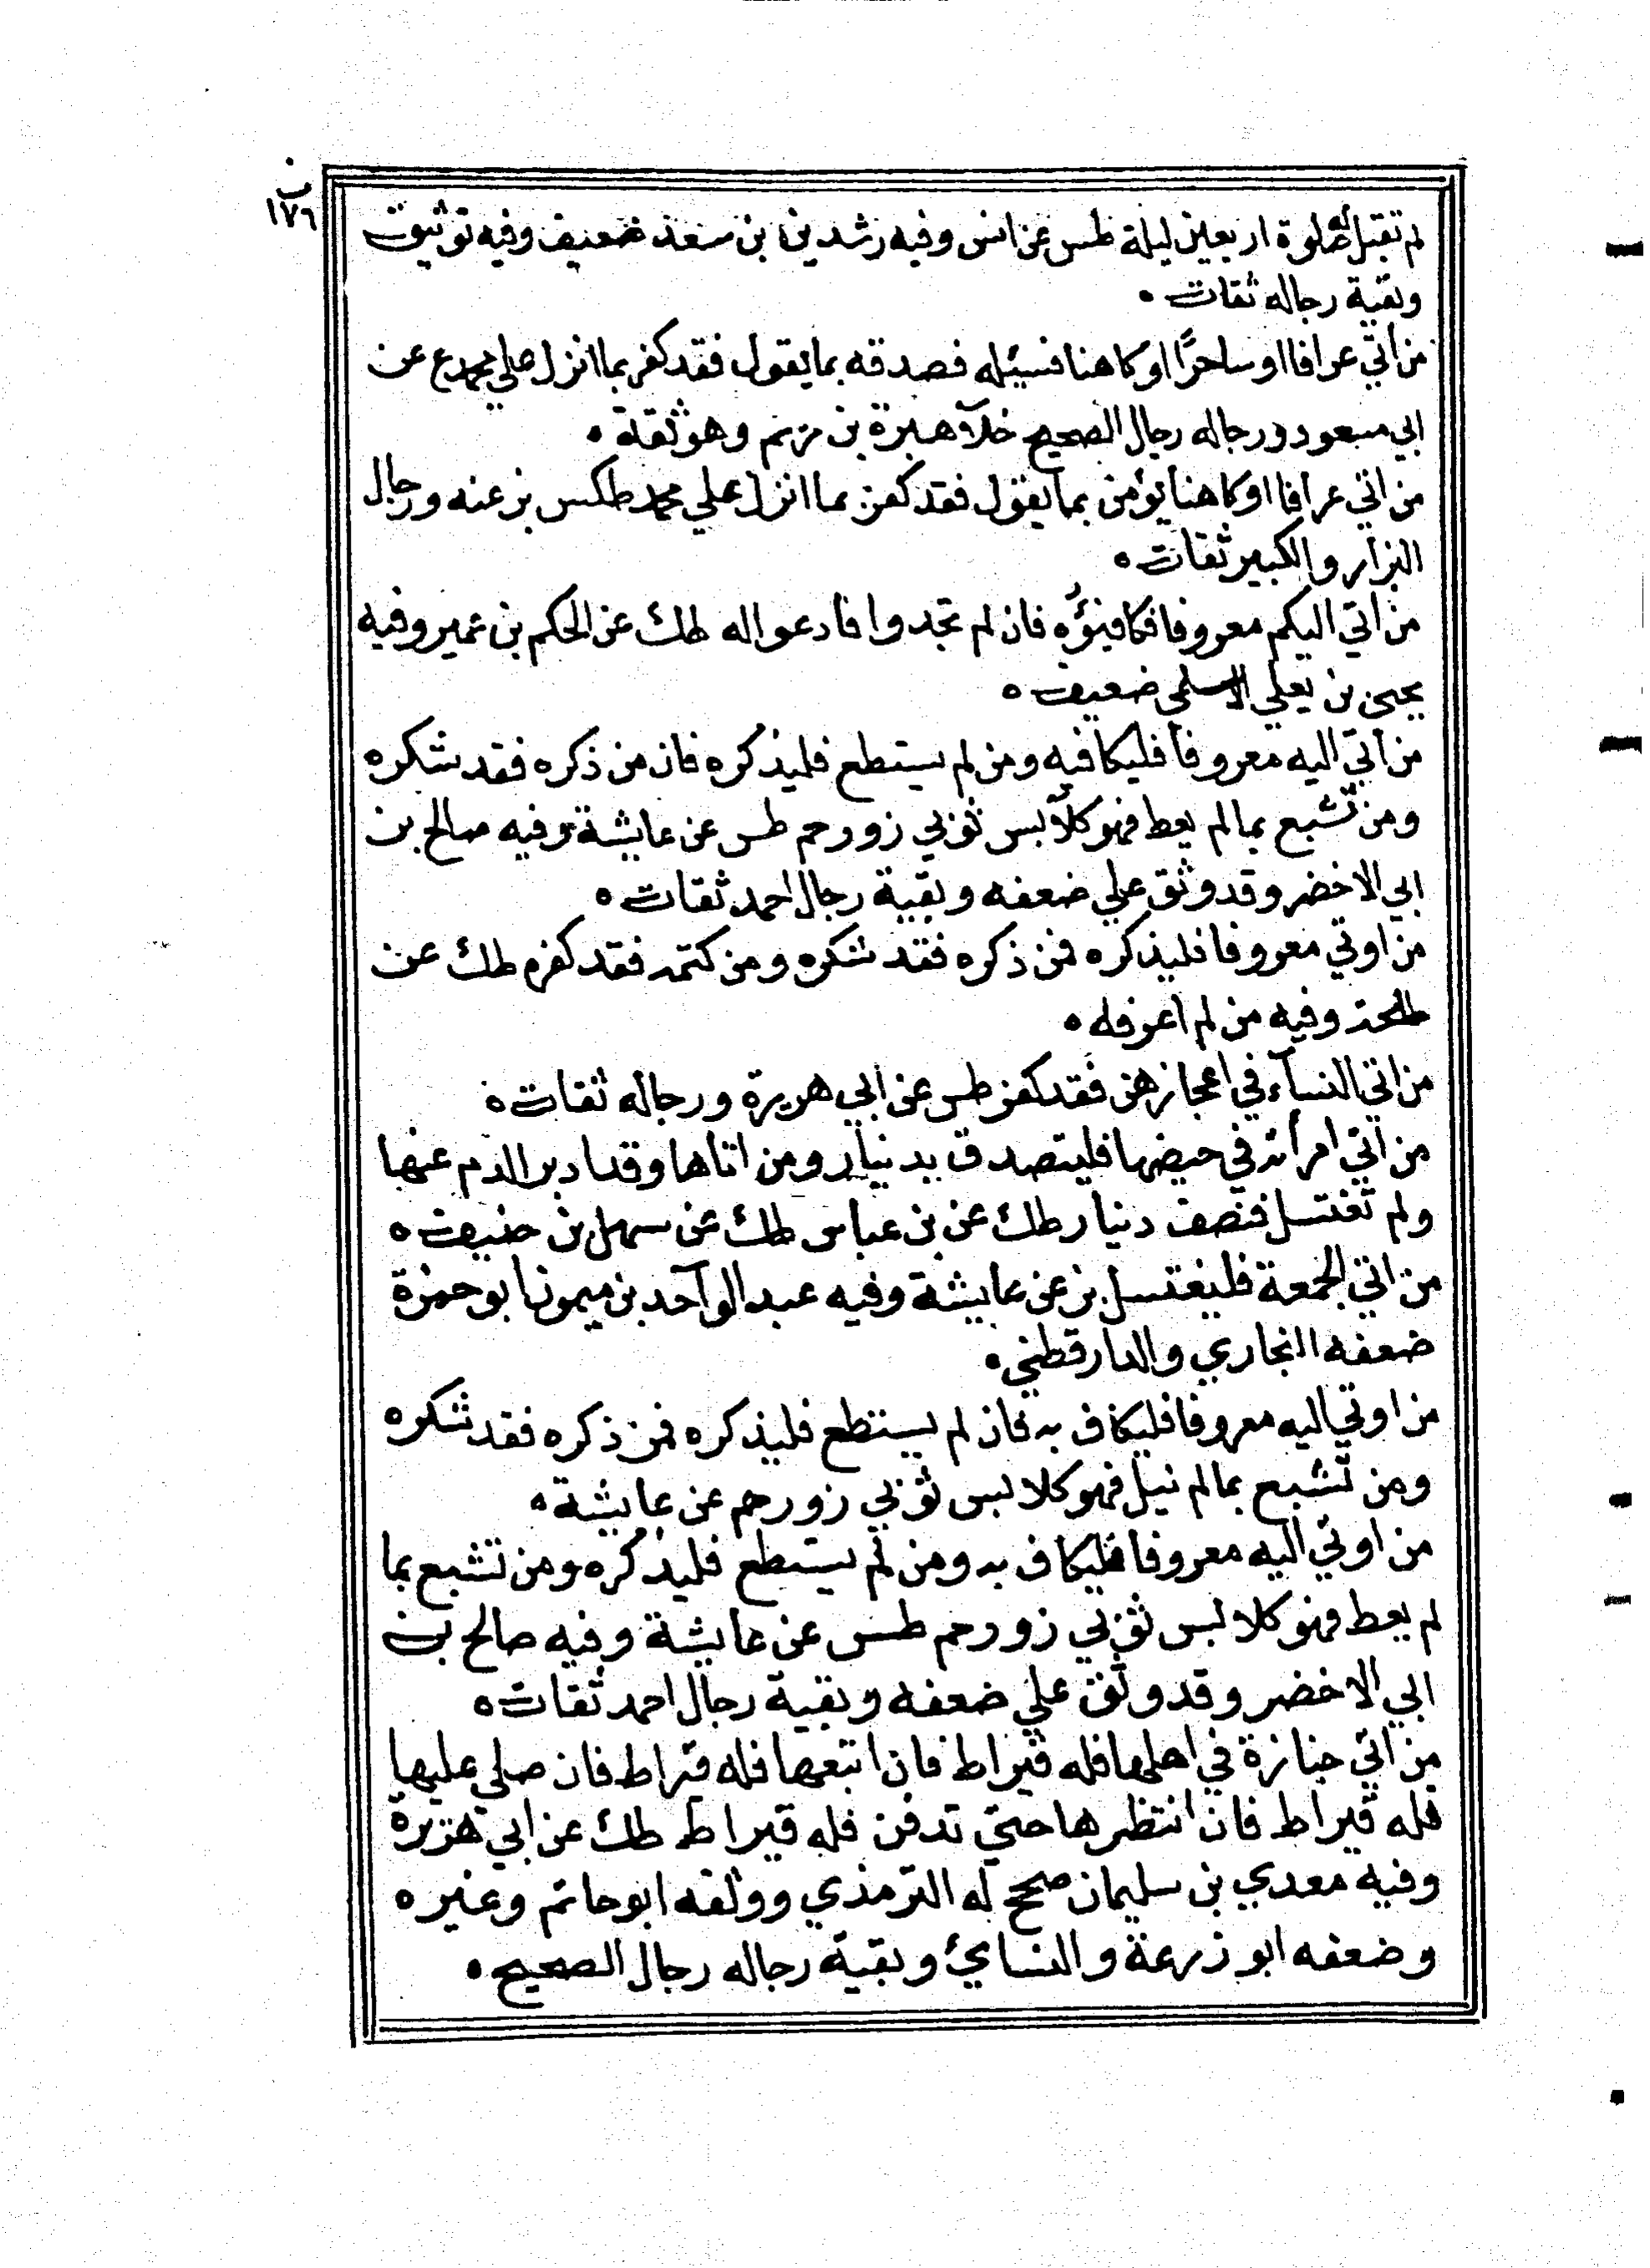 ب
١٧٦
لم تقبل له صلوة اربعين ليلة طس عن انس وفيه رشدين بن سعد ضعيف وفيه توثيق
وبقية رجاله ثقات ه
من اتي عرافا او ساحرًا او كاهنا فسئيله فصدقه بما يقول فقد كفر بما انزل علي محمد ع عن
ابي مسعود ورجاله رجال الصحيح خلآ هبيرة بن مريم وهو ثقة ه
من اتي عرافا او كاهنا يؤمن بما يقول فقد كفر بما انزل علي محمد طكس بز عنه ورجال
البزار والكبير ثقات ه
من اتي اليكم معروفا فكافيؤه فان لم تجدوا فادعوا له طك عن الحكم بن عمير وفيه
يحيى بن يعلي الاسلمى ضعيف ه
من اتي اليه معروفا فليكافيه ومن لم يستطع فليذكره فان من ذكره فقد شكره
ومن تشبع بما لم يعط فهو كلآبس ثوبي زور حم طس عن عايشة وفيه صالح بن
ابي الاخضر وقد وثق علي ضعفه وبقية رجال احمد ثقات ه
من اوتي معروفا فليذكره فمن ذكره فقد شكره ومن كتمه فقد كفره طك عن
طلحة وفيه من لم اعرفه ه
من اتي النسآء في اعجازهن فقد كفر طس عن ابي هريرة ورجاله ثقات ه
من اتي امرأته في حيضها فليتصدق بدينار ومن اتاها وقد ادبر الدم عنها
ولم تغتسل فنصف دينار طك عن بن عباس طك عن سهل بن حنيف ه
من اتي الجمعة فليغتسل بز عن عايشة وفيه عبد الوآحد بن ميمون ابو حمزة
ضعفه البخاري والدارقطني ه
من اوتي اليه معروفا فليكاف به فان لم يستطع فليذكره فمن ذكره فقد شكره
ومن تشبع بما لم نيل فهو كلابس ثوبي زور حم عن عايشة ه
من اوتي اليه معروفا فليكاف به ومن لم يستطع فليذكره ومن تشبع بما
لم يعط فهو كلابس ثوبي زور حم طس عن عايشة وفيه صالح بن
ابي الاخضر وقد وثق علي ضعفه وبقية رجال احمد ثقات ه
من اتي جنازة في اهلها فله قيراط فان اتبعها فله قيراط فان صلي عليها
فله قيراط فان انتظرها حتي تدفن فله قيراط طك عن ابي هريرة
وفيه معدي بن سليمان صحح له الترمذي ووثقه ابو حاتم وغيره
وضعفه ابو زرعة والنسايئ وبقية رجاله رجال الصحيح ه